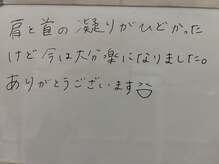 肩と首の凝りがひどかった
けど今は大分楽になりました。
ありがとうございます